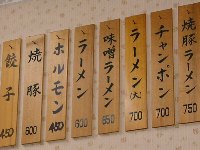 焼豚ラーメン 750
チャンポン 700
ラーメン(大) 700
味噌ラーメン 650
ラーメン 600
ホルモン 450
焼豚 600
餃子 450